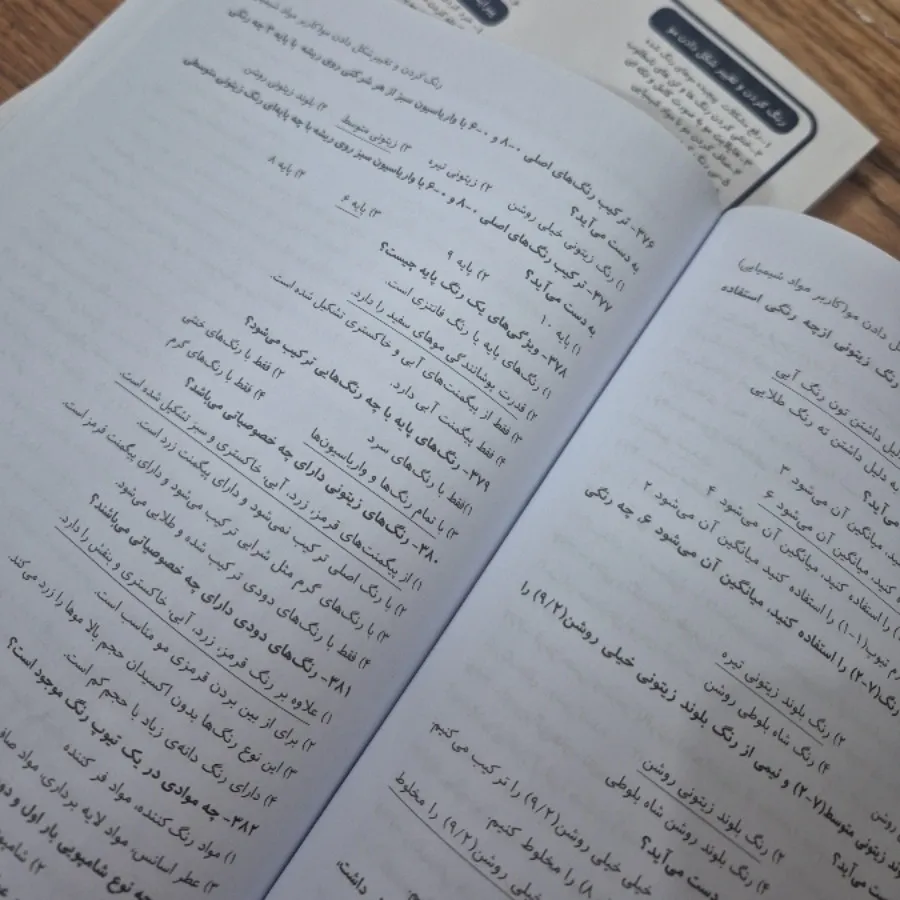 رنگ کردن و تغییر شکل دادن مو(کاربرد مواد شیمیایی)
۳۷۶- ترکیب رنگ‌های اصلی ۸۰۰ و ۶۰۰ با واریاسیون سبز از هر شرکتی روی ریشه با پایه ۴ چه رنگی
به دست می‌آید؟
۱) رنگ زیتونی خیلی روشن ۲) زیتونی تیره ۳) زیتونی متوسط ۴) بلوند زیتونی روشن
۳۷۷- ترکیب رنگ‌های اصلی ۸۰۰ و ۶۰۰ با واریاسیون سبز روی ریشه با چه پایه‌ای رنگ زیتونی متوسطی
به دست می‌آید؟
۱) پایه ۱۰ ۲) پایه ۹ ۳) پایه ۶ ۴) پایه ۸
۳۷۸- ویژگی‌های یک رنگ پایه چیست؟
۱) رنگ‌های پایه یا رنگ فانتزی است.
۲) قدرت پوشانندگی موهای سفید را دارد.
۳) فقط از پیگمنت‌های آبی و خاکستری تشکیل شده است.
۴) فقط پیگمنت آبی دارد.
۳۷۹- رنگ‌های پایه با چه رنگ‌هایی ترکیب می‌شود؟
۱) فقط با رنگ‌های سرد ۲) فقط با رنگ‌های خنثی
۳) با تمام رنگ‌ها و واریاسیون‌ها ۴) فقط با رنگ‌های گرم
۳۸۰- رنگ‌های زیتونی دارای چه خصوصیاتی می‌باشد؟
۱) از پیگمنت‌های قرمز، زرد، آبی، خاکستری و سبز تشکیل شده است.
۲) با رنگ اصلی ترکیب نمی‌شود و دارای پیگمنت زرد است.
۳) با رنگ‌های گرم مثل شرابی ترکیب می‌شود و دارای پیگمنت قرمز است.
۴) فقط با رنگ‌های دودی ترکیب شده و طلایی می‌شود.
۳۸۱- رنگ‌های دودی دارای چه خصوصیاتی می‌باشند؟
۱) علاوه بر رنگ قرمز، زرد، آبی، خاکستری و بنفش را دارد.
۲) برای از بین بردن قرمزی مو مناسب است.
۳) این نوع رنگ‌ها بدون اکسیدان حجم بالا موها را زرد می‌کند
۴) دارای رنگ دانه‌ی زیاد یا حجم کم است.
۳۸۲- چه موادی در یک تیوپ رنگ موجود است؟
۱) مواد رنگ کننده مواد فر کننده
۳) عطر اسانس، مواد لایه برداری، مواد صاف
چه نوع شامپویی بار اول و دو
۲) شامپو
دادن مو(کاربر مواد شیمیایی)
رنگ زیتونی ازچه رنگی استفاده
دلیل داشتن تون رنگ آبی
به دلیل داشتن ته رنگ طلایی
می‌آید؟
کنید، میانگین آن می‌شود ۳
کنید، میانگین آن می‌شود ۶
را استفاده کنید، میانگین آن می‌شود ۴
تیوب(۱-۱) را استفاده کنید میانگین آن می‌شود ۲
رنگ(۷-۲) را استفاده کنید، میانگین آن می‌شود ۶، چه رنگی
۲) رنگ بلوند زیتونی تیره
۴) رنگ شاه بلوطی روشن
زیتونی متوسط(۷-۲) و نیمی از رنگ بلوند زیتونی خیلی روشن(۹/۲) را
دست می‌آید؟
۲) رنگ بلوند زیتونی روشن
۴) رنگ بلوند روشن شاه بلوطی
دست می‌آید؟
خیلی روشن(۹/۲) را ترکیب می‌کنیم
را مخلوط کنیم.
خیلی روشن(۹/۲) را مخلوط
کنیم.
داشت،
رنگ کردن و تغییر شکل دادن مو
۱-رفع مشکلات پیچیده موهای رنگ شده
۲-خنثی کردن رنگ ها و تن های نامطلوب
۵-رنگ